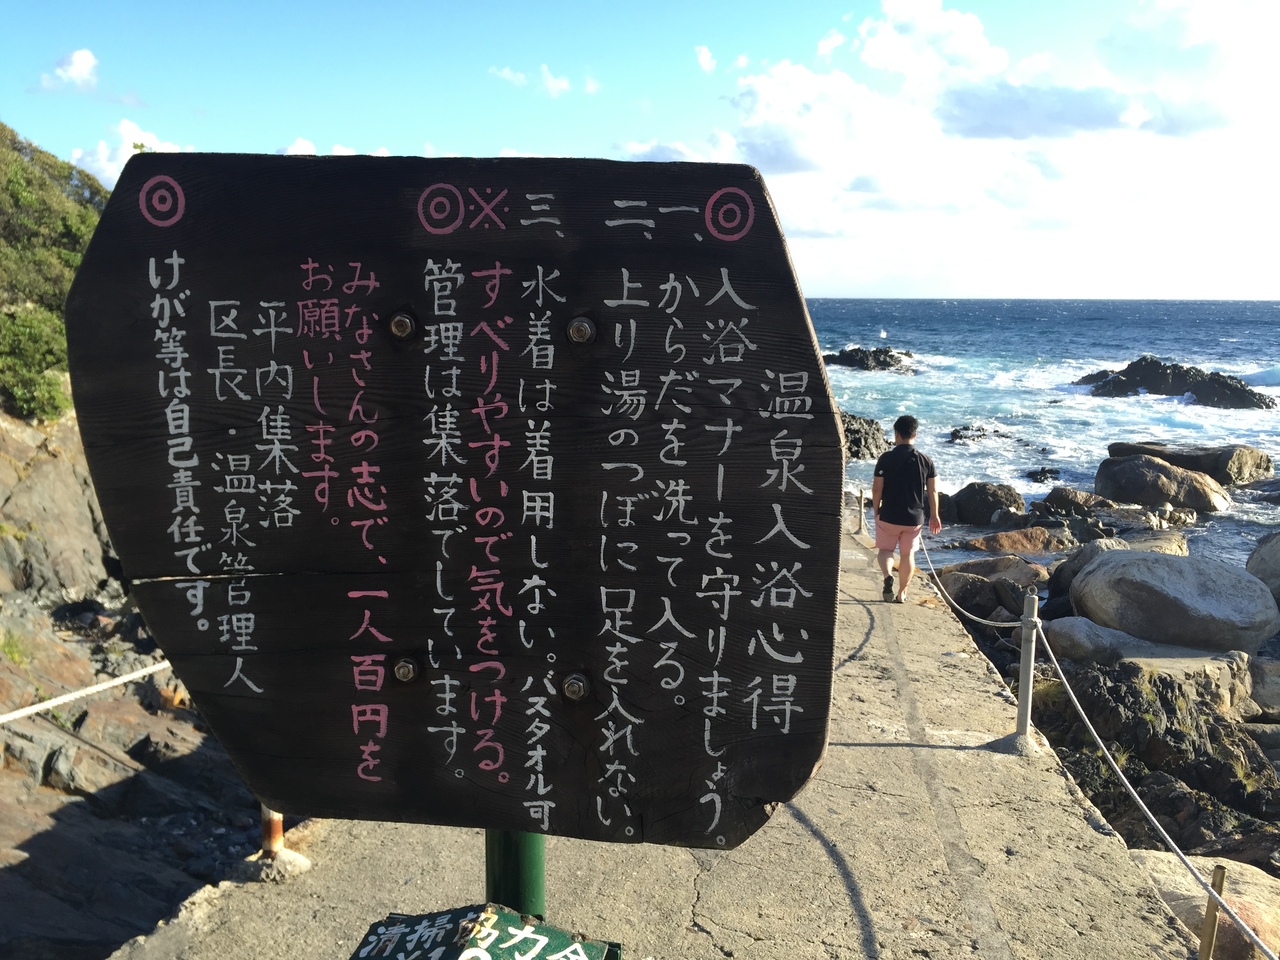 温泉入浴心得
◎入浴マナーを守りましょう。
一、からだを洗って入る。
二、上り湯のつぼに足を入れない。
三、水着は着用しない。バスタオル可
※すべりやすいので気をつける。
◎管理は集落でしています。
みなさんの志で、一人百円を
お願いします。
平内集落
区長・温泉管理人
◎けが等は自己責任です。
清掃協力金